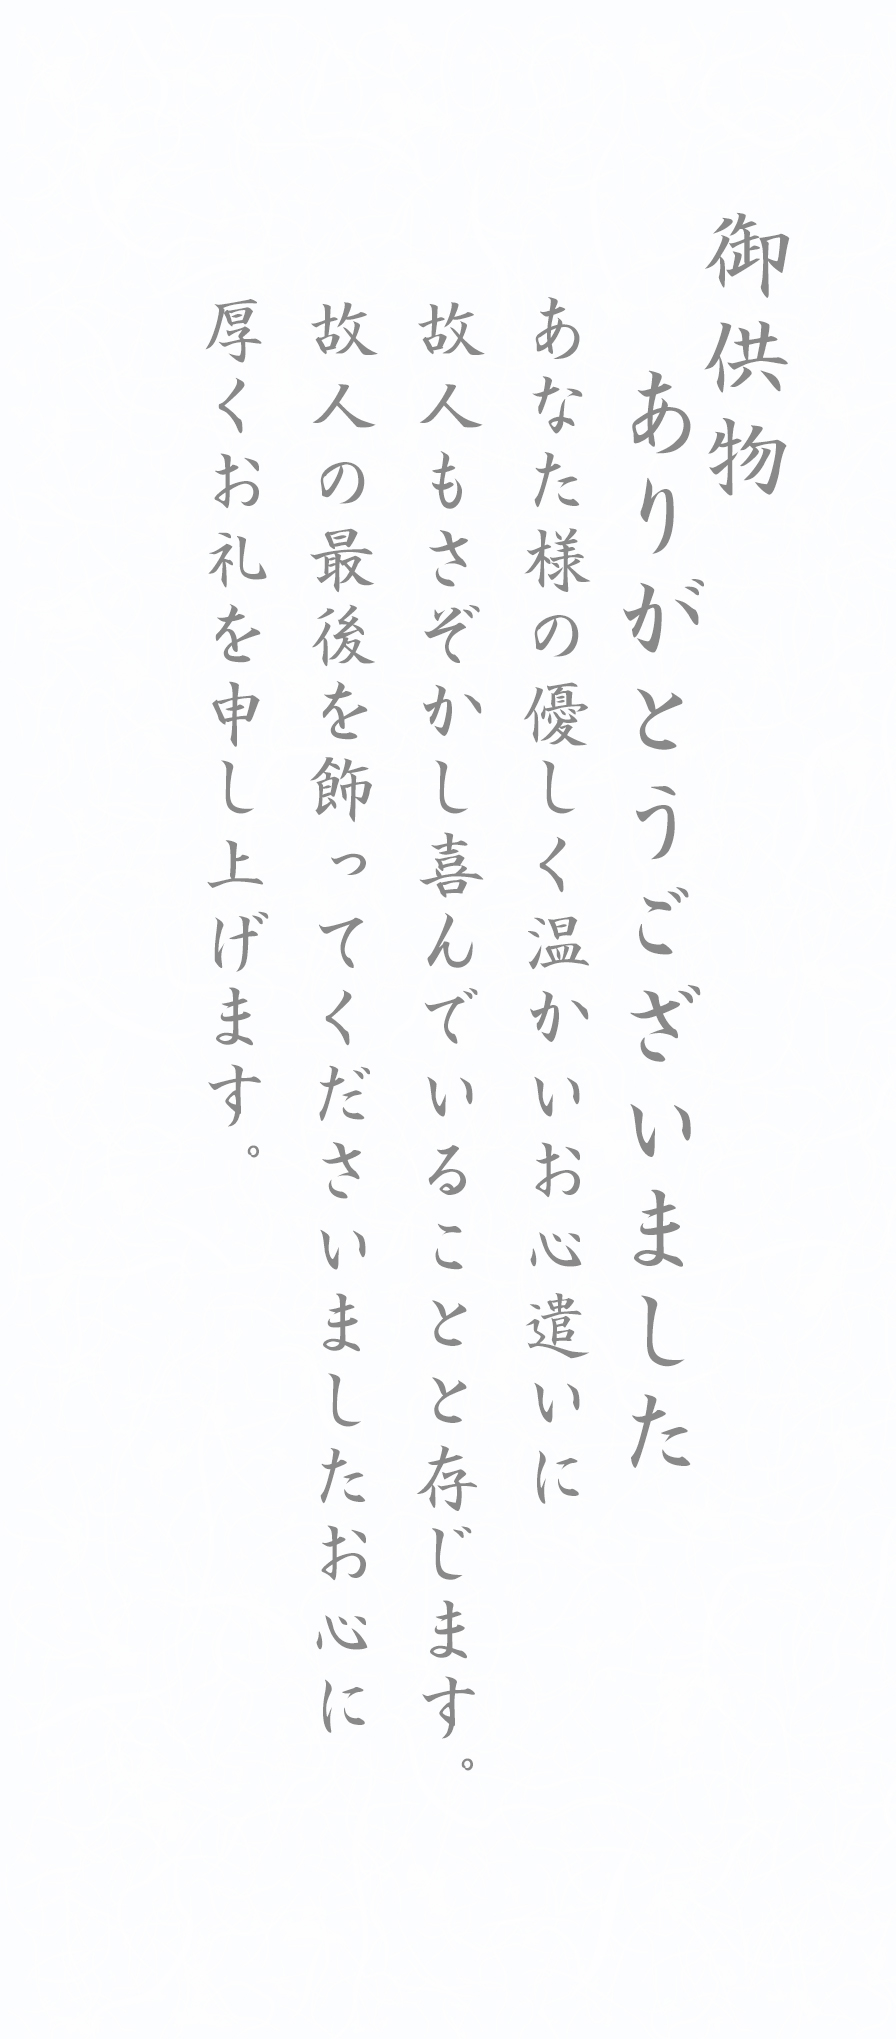 御供物
ありがとうございました
あなた様の優しく温かいお心遣いに
故人もさぞかし喜んでいることと存じます。
故人の最後を飾ってくださいましたお心に
厚くお礼を申し上げます。